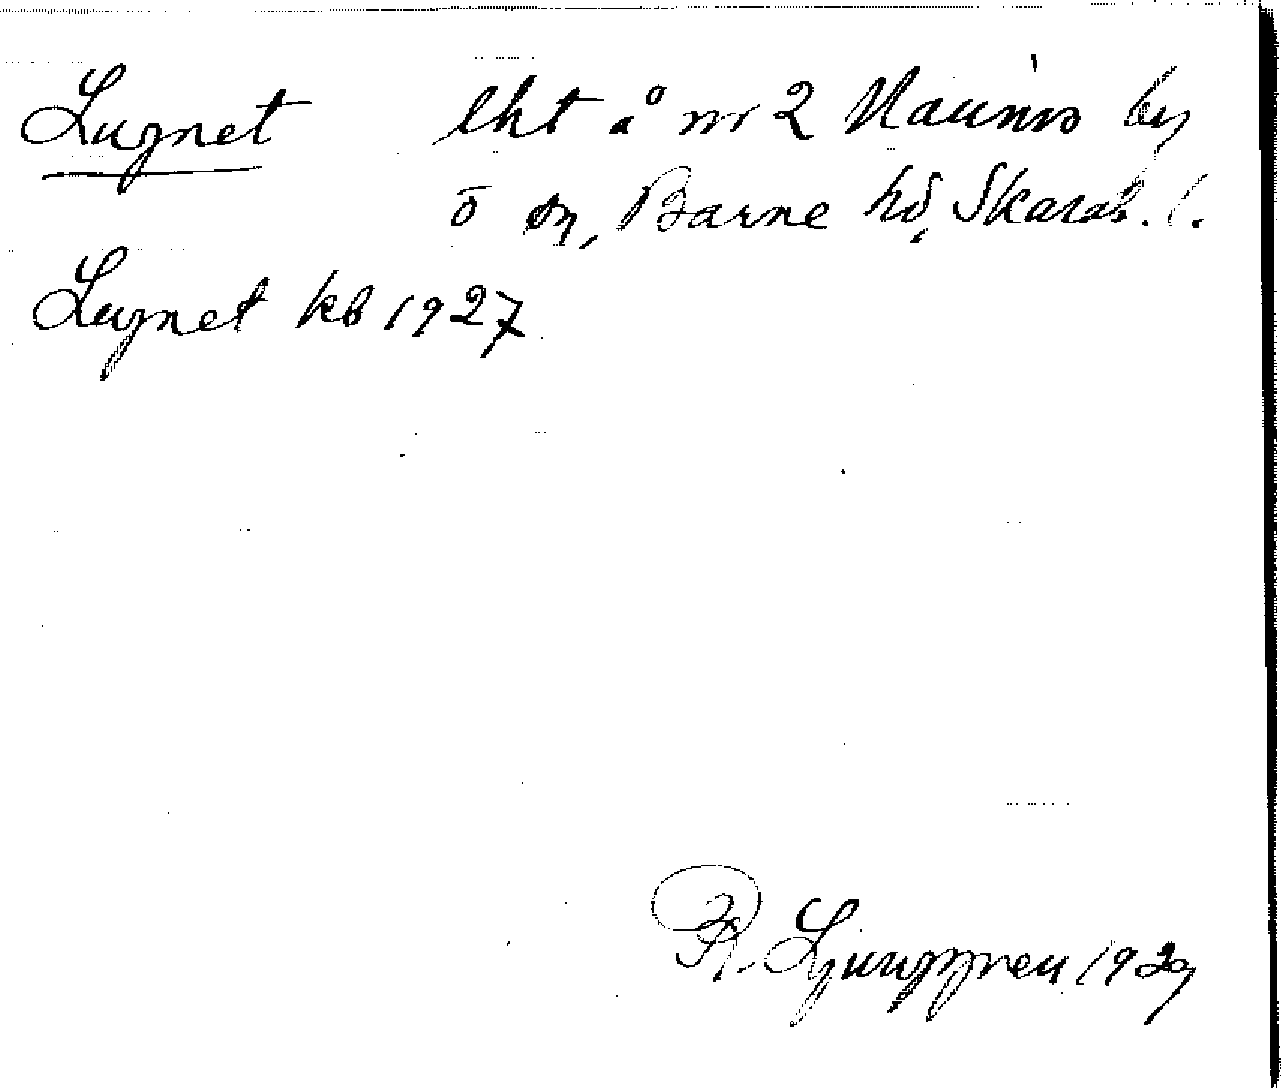 Lugnet lht å nr 2 Naums by
Ö sn, Barne hd, Skarab. l.
Lugnet kb 1927
R. Ljunggren 1929